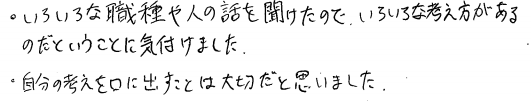 ・いろいろな職種や人の話を聞けたので、いろいろな考え方がある
のだということに気付けました.
・自分の考えを口に出すことは大切だと思いました.